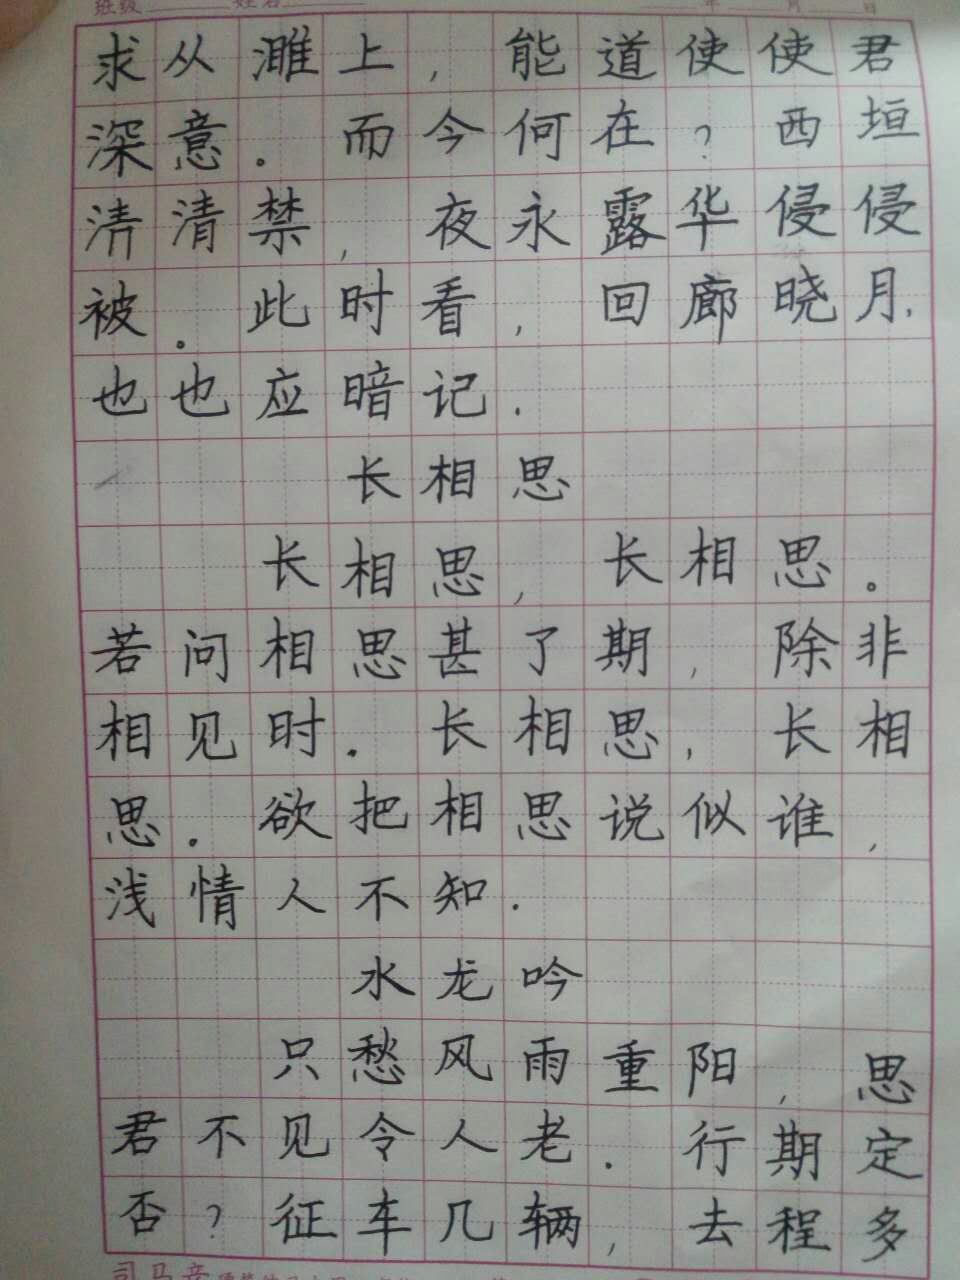 班级 姓名 年 月 日
求从濉上，能道使使君
深意。而今何在？西垣
清清禁，夜永露华侵侵
被。此时看，回廊晓月，
也也应暗记。
长相思
长相思，长相思。
若问相思甚了期，除非
相见时。长相思，长相
思。欲把相思说似谁，
浅情人不知。
水龙吟
只愁风雨重阳，思
君不见令人老。行期定
否？征车几辆，去程多
司马彦